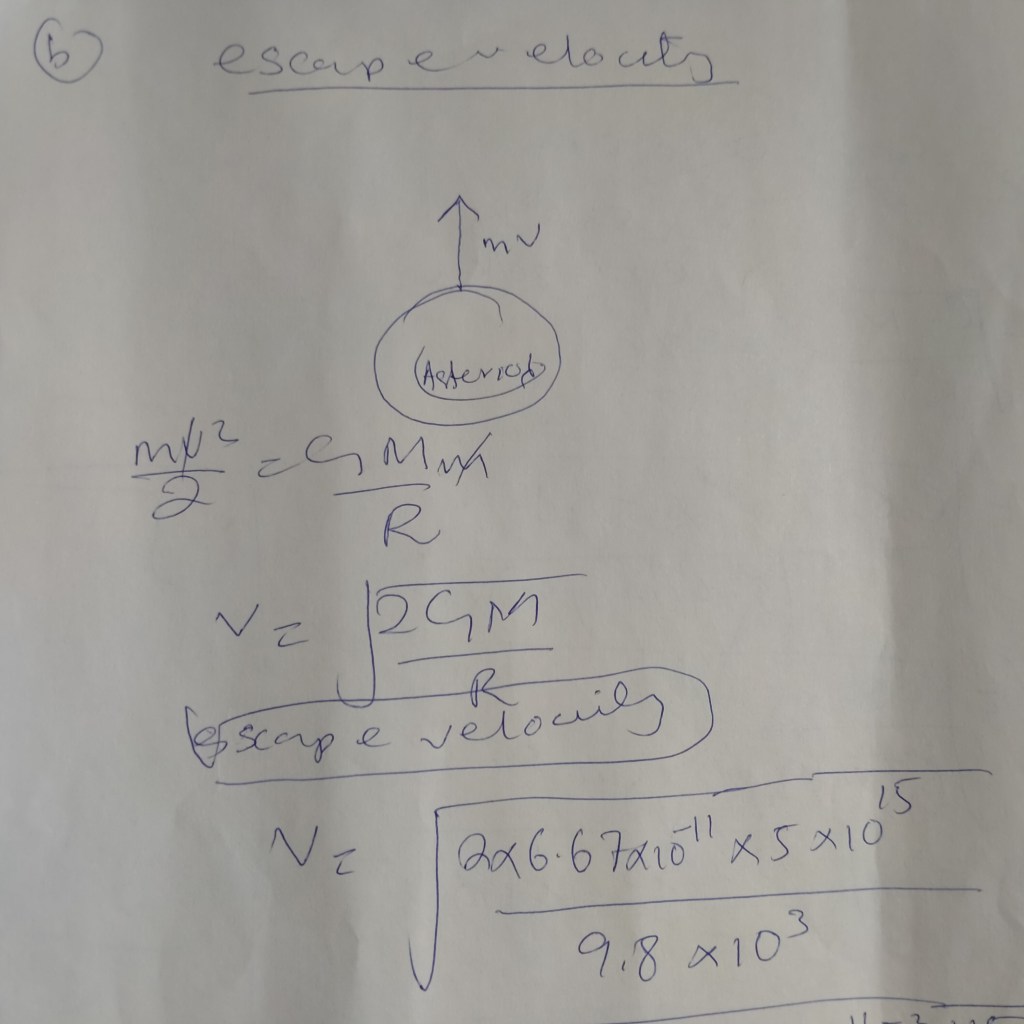 (b) escape velocity
mv
Asteriod
mv²/2 = GMm/R
v = √(2GM/R)
escape velocity
V = √(2×6.67×10⁻¹¹ × 5 ×10¹⁵ / 9.8 ×10³)